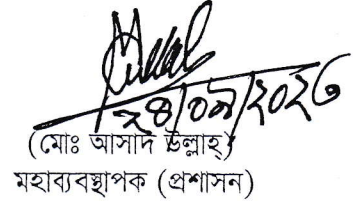 ২৪/০৯/২০২৩
(মোঃ আসাদ উল্লাহ্)
মহাব্যবস্থাপক (প্রশাসন)